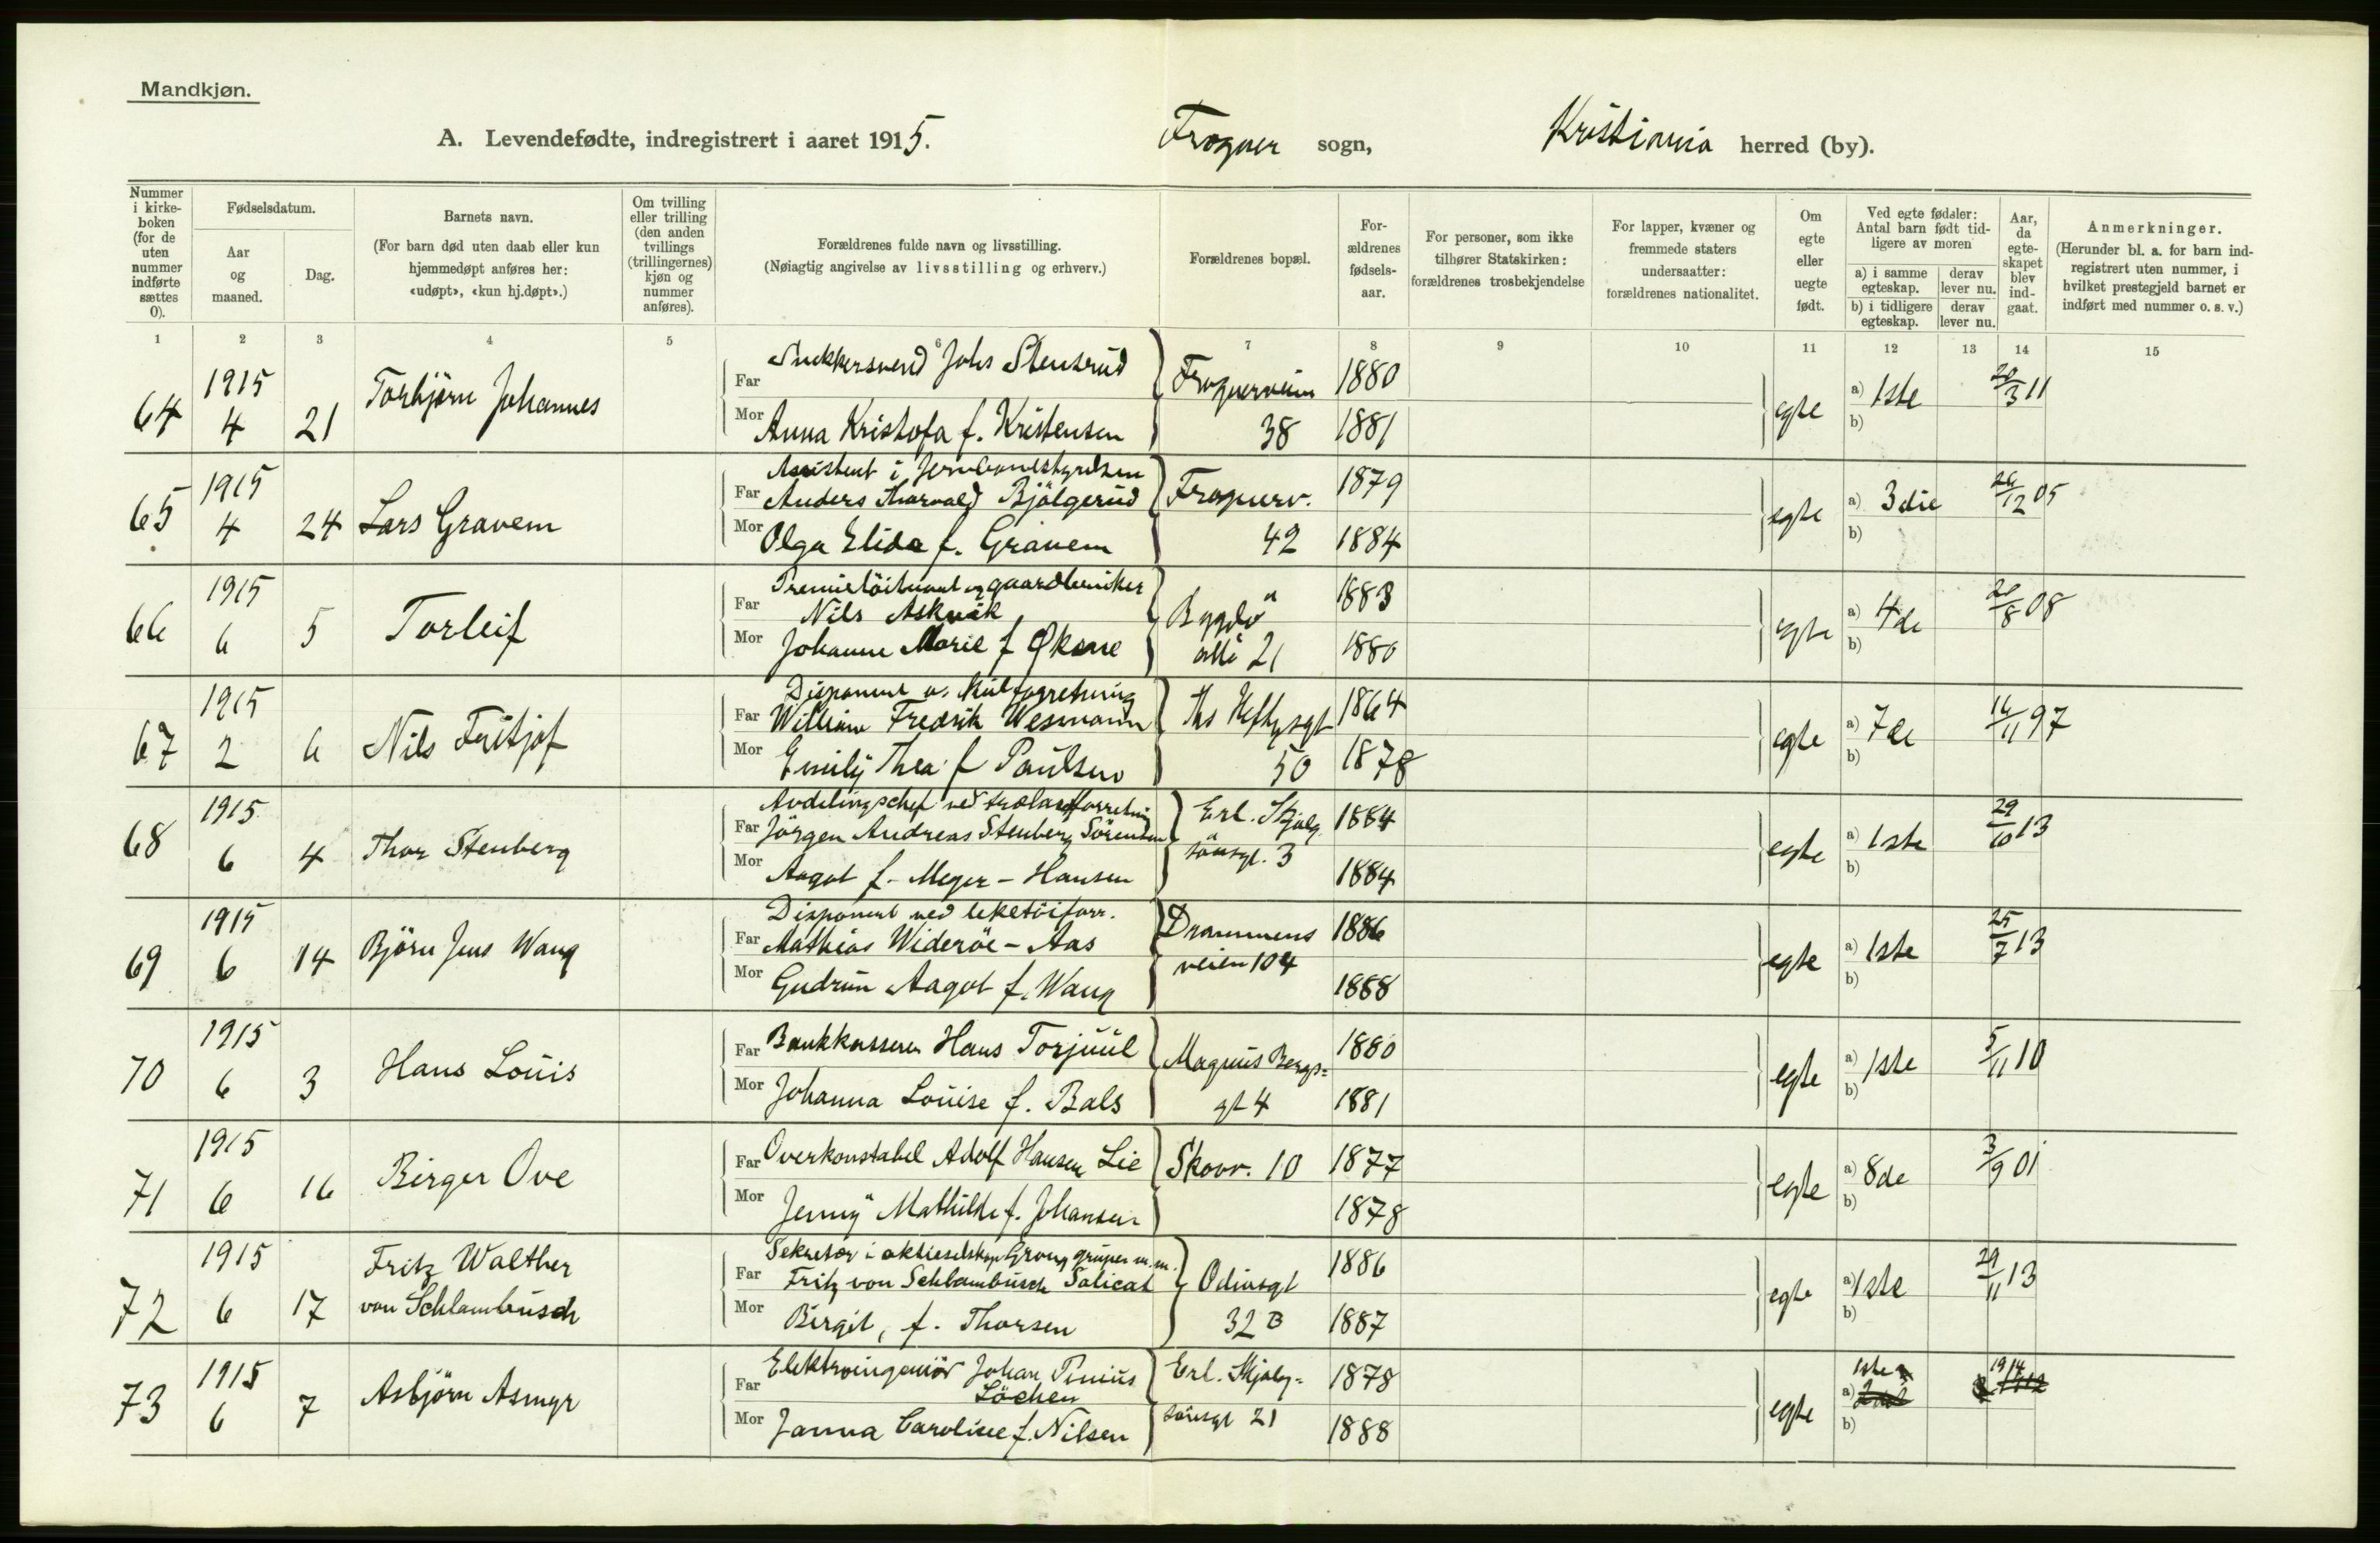 Mandkjøn.
A. Levendefødte, indregistrert i aaret 1915. Frogner sogn, Kristiania herred (by).
Nummer i kirke-boken (for de uten nummer indførte sættes 0).
Fødselsdatum.
Aar og maaned.
Dag.
Barnets navn.
(For barn død uten daab eller kun hjemmedøpt anføres her: «udøpt», «kun hj.døpt».)
Om tvilling eller trilling (den anden tvillings (trillingernes) kjøn og nummer anføres).
Forældrenes fulde navn og livsstilling.
(Nøiagtig angivelse av livsstilling og erhverv.)
Forældrenes bopæl.
For-ældrenes fødsels-aar.
For personer, som ikke tilhører Statskirken: forældrenes trosbekjendelse
For lapper, kvæner og fremmede staters undersaatter: forældrenes nationalitet.
Om egte eller uegte født.
Ved egte fødsler: Antal barn født tid-ligere av moren
a) i samme egteskap.
derav lever nu.
b) i tidligere egteskap.
derav lever nu.
Aar, da egte-skapet blev ind-gaat.
Anmerkninger.
(Herunder bl. a. for barn ind-registrert uten nummer, i hvilket prestegjeld barnet er indført med nummer o. s. v.)
1 2 3 4 5 6 7 8 9 10 11 12 13 14 15
64 1915 4 21 Torbjørn Johannes
Far Snekkersvend Johs Stensrud Frognerveien 1880
Mor Anna Kristofa f. Kristensen 38 1881
egte a) 1ste b) 20/3 11
65 1915 4 24 Lars Gravem
Assistent i Jernbanestyrelsen
Far Anders Thorvald Bjölgerud Frognerv. 1879
Mor Olga Elida f. Gravem 42 1884
egte a) 3die b) 26/12 05
66 1915 6 5 Torleif
Premierlöitnant og
Far Nils Askvik Bygdö 1883
Mor Johanne Marie f Øksne allé 21 1880
egte a) 4de b) 20/8 08
67 1915 2 6 Nils Fritjof
Disponent
Far William Fredrik Wesmann Ths Heftysgt 1864
Mor Emily Thea f Paulsen 50 1878
egte a) 7de b) 16/11 97
68 1915 6 4 Thor Stenberg
Avdelingschef ved trælastforretning
Far Jörgen Andreas Stenberg Sörensen Erl. Skjalg 1884
Mor Aagot f. Meyer-Hansen sönsgt. 3 1884
egte a) 1ste b) 29/10 13
69 1915 6 14 Björn Jens Wang
Disponent ved leketöiforr.
Far Mathias Wideröe-Aas Drammens 1886
Mor Gudrun Aagot f. Wang veien 104 1888
egte a) 1ste b) 25/7 13
70 1915 6 3 Hans Louis
Far Bankkasserer Hans Torjuul Magnus Bergs= 1880
Mor Johanna Louise f. Bals gt 4 1881
egte a) 1ste b) 5/11 10
71 1915 6 16 Birger Ove
Far Overkonstabel Adolf Hansen Lie Skovv. 10 1877
Mor Jenny Mathilde f. Johansen 1878
egte a) 8de b) 3/9 01
72 1915 6 17 Fritz Walther von Schlambusch
Sekretær i aktieselskap Grong gruper m.m.
Far Fritz von Schlambusch Salicath Odinsgt 1886
Mor Birgit, f. Thorsen 32 B 1887
egte a) 1ste b) 29/11 13
73 1915 6 7 Asbjörn Asmyr
Far Elektroingeniör Johan Pinius Löchen Erl. Skjalg= 1878
Mor Janna Caroline f. Nilsen sönsgt 21 1888
egte 1ste a) b) 1914